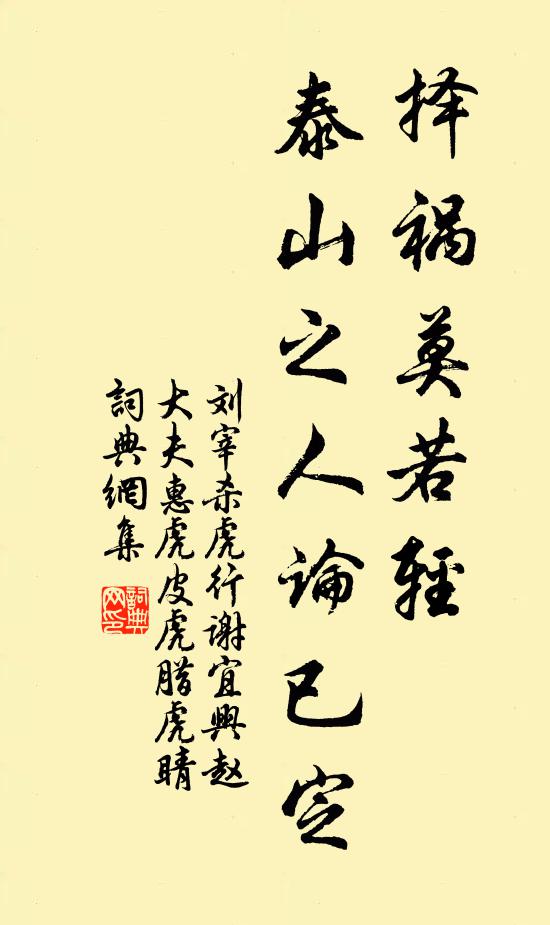 择祸莫若轻
泰山之人论已定
刘宰杀虎行谢宜興赵
大夫惠虎皮虎腊虎睛
詞典網集
詞典网印